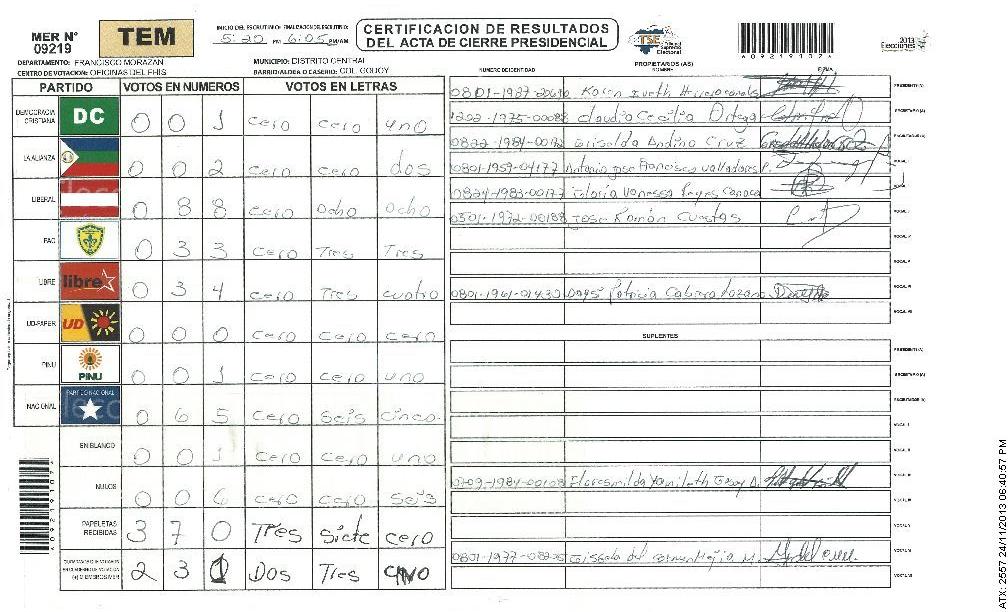 MER N° 09219
TEM
INICIO DEL ESCRUTINIO FINALIZACION DEL ESCRUTINIO:
5:20 PM 6:05 PM/AM
CERTIFICACION DE RESULTADOS
DEL ACTA DE CIERRE PRESIDENCIAL
TSE Tribunal Supremo Electoral
6092191072
2013
Elecciones
DEPARTAMENTO: FRANCISCO MORAZAN
MUNICIPIO: DISTRITO CENTRAL
CENTRO DE VOTACION: OFICINAS DEL FHIS
BARRIO/ALDEA O CASERIO: COL. GODOY
PARTIDO VOTOS EN NUMEROS VOTOS EN LETRAS
DEMOCRACIA CRISTIANA DC 0 0 1 cero cero uno
LA ALIANZA 0 0 2 cero cero dos
LIBERAL 0 8 8 cero ocho ocho
PAC 0 3 3 cero Tres Tres
LIBRE libre 0 3 4 cero Tres cuatro
UD-FAPER UD 0 0 0 cero cero cero
PINU PINU 0 0 1 cero cero uno
NACIONAL PARTIDO NACIONAL 0 6 5 cero seis cinco
EN BLANCO 0 0 1 cero cero uno
NULOS 0 0 6 cero cero seis
PAPELETAS RECIBIDAS 3 7 0 Tres siete cero
2 3 Dos Tres
6092191072
PROPIETARIOS (AS)
NUMERO DE IDENTIDAD NOMBRE FIRMA
Karen Iveth PRESIDENTE (A)
1222-1975-00088 Claudia Cecilia Ortega SECRETARIO (A)
Griselda Andino Cruz ESCRUTADOR (A)
0801-1959-04177 Antonio Jose Francisco Valladares P. VOCAL I
0824-1983-00177 Gloria Vanessa Reyes VOCAL II
0301-1972-00188 Jose Ramón Cuestas VOCAL III
VOCAL IV
VOCAL V
Patricia Cabrera Lozano VOCAL VI
VOCAL VII
SUPLENTES
PRESIDENTE (A)
SECRETARIO (A)
ESCRUTADOR (A)
VOCAL I
VOCAL II
VOCAL III
VOCAL IV
VOCAL V
VOCAL VI
VOCAL VII
ATX: 2557 24/11/2013 06:40:57 PM